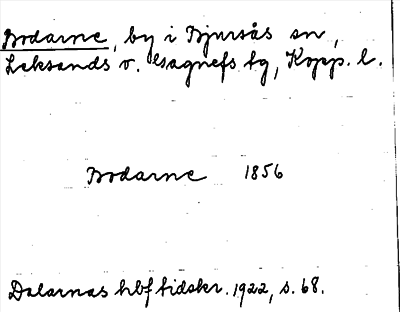 Bodarne, by i Bjursås sn,
Leksands o. Gagnefs tg, Kopp. l.
Bodarne 1856
Dalarnas hbf tidskr. 1922, s. 68.